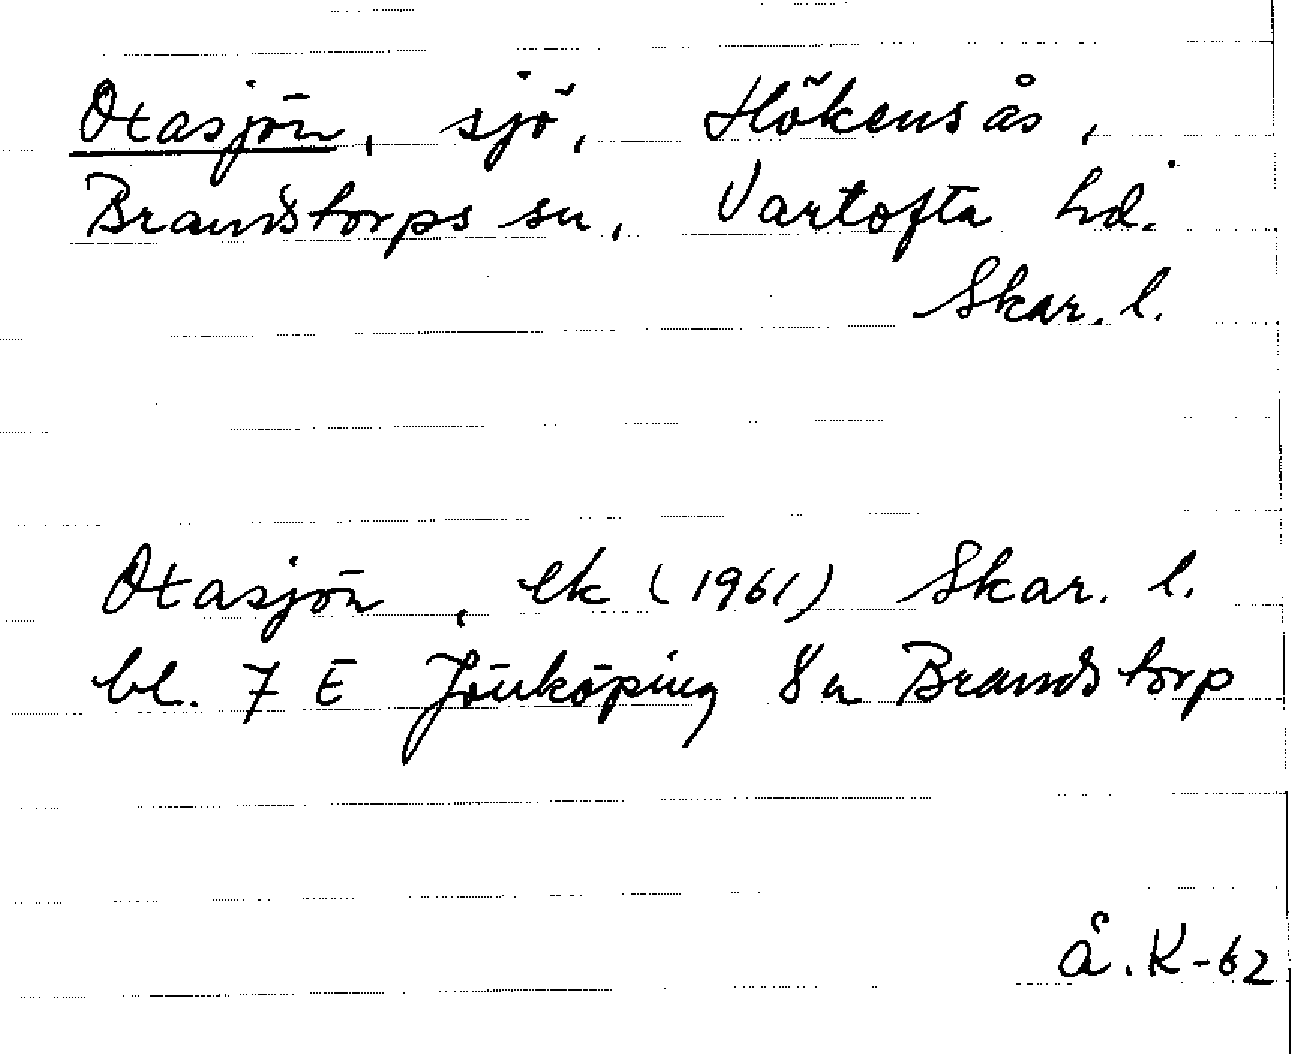 Otasjön, sjö, Hökensås,
Brandstorps sn, Vartofta hd.
Skar. l.
Otasjön, ek (1961) Skar. l.
bl. 7 E Jönköping 8a Brandstorp
Å. K-62